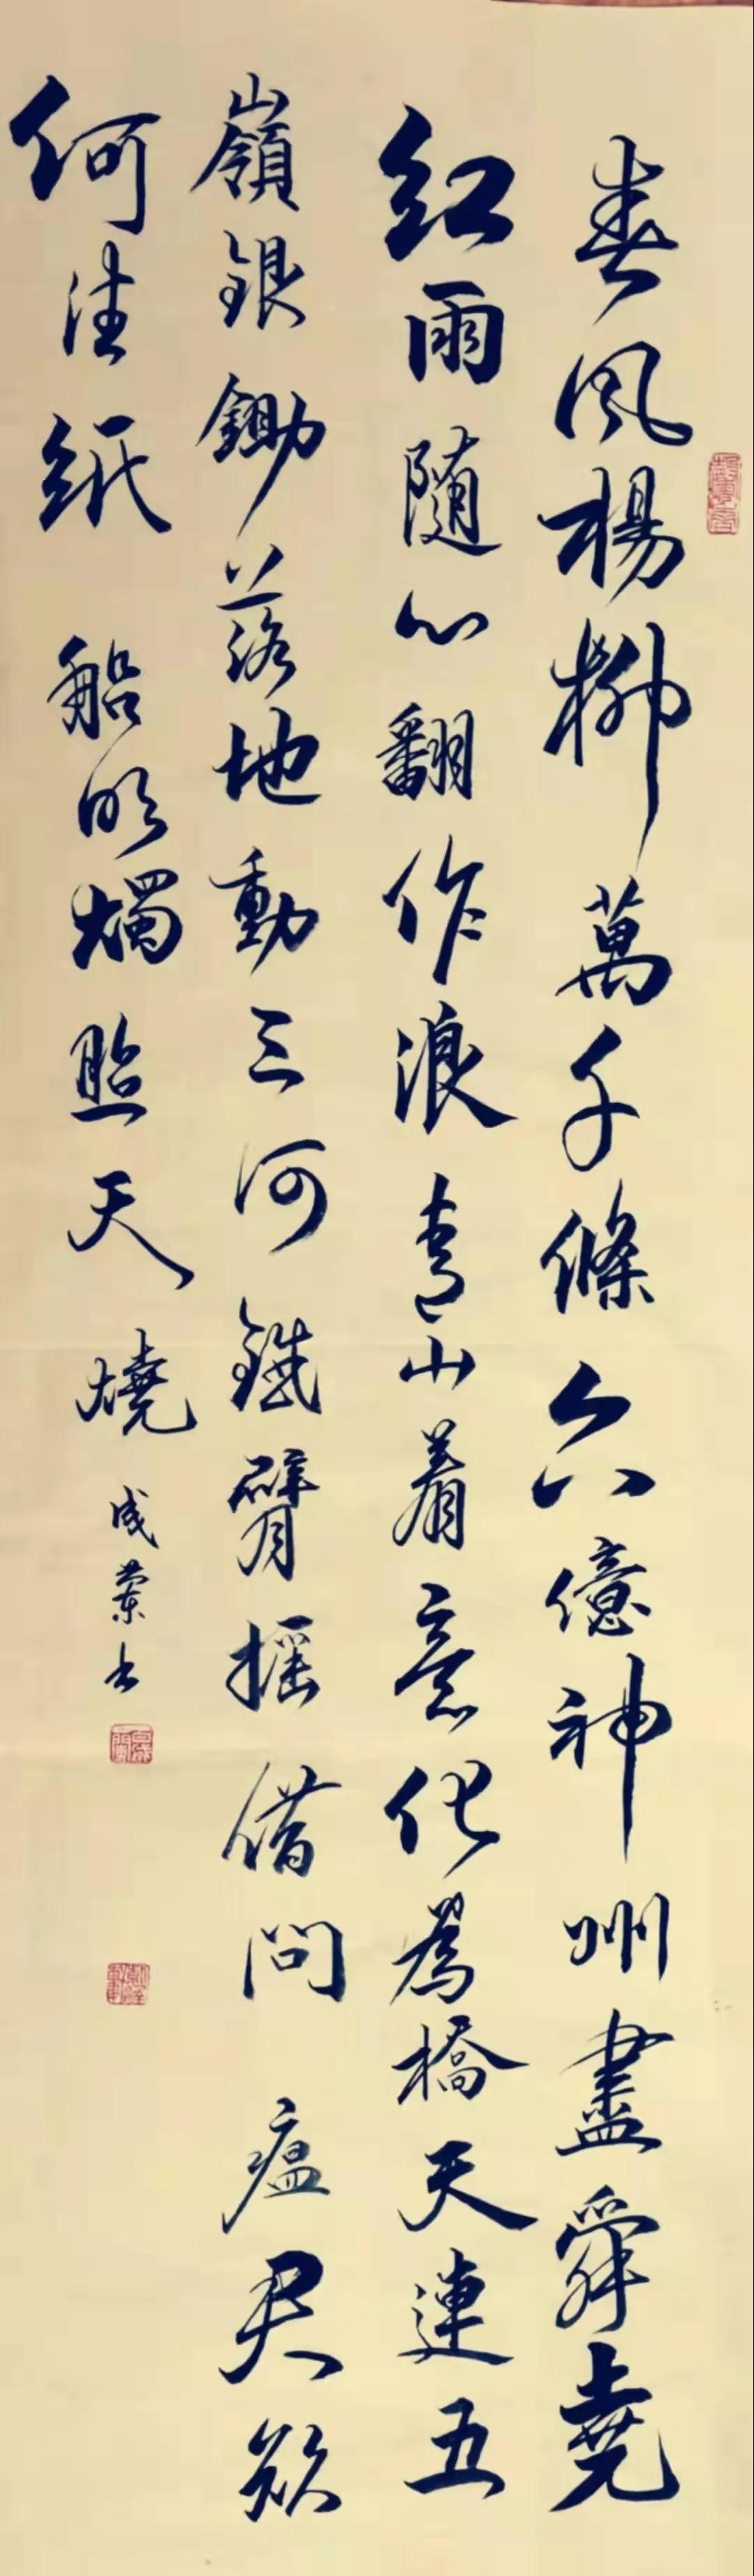 春風楊柳萬千條六億神州盡舜堯
紅雨随心翻作浪青山着意化為橋天連五
嶺銀鋤落地動三河鐵臂摇借問瘟君欲
何往紙船明燭照天燒
成蘭书